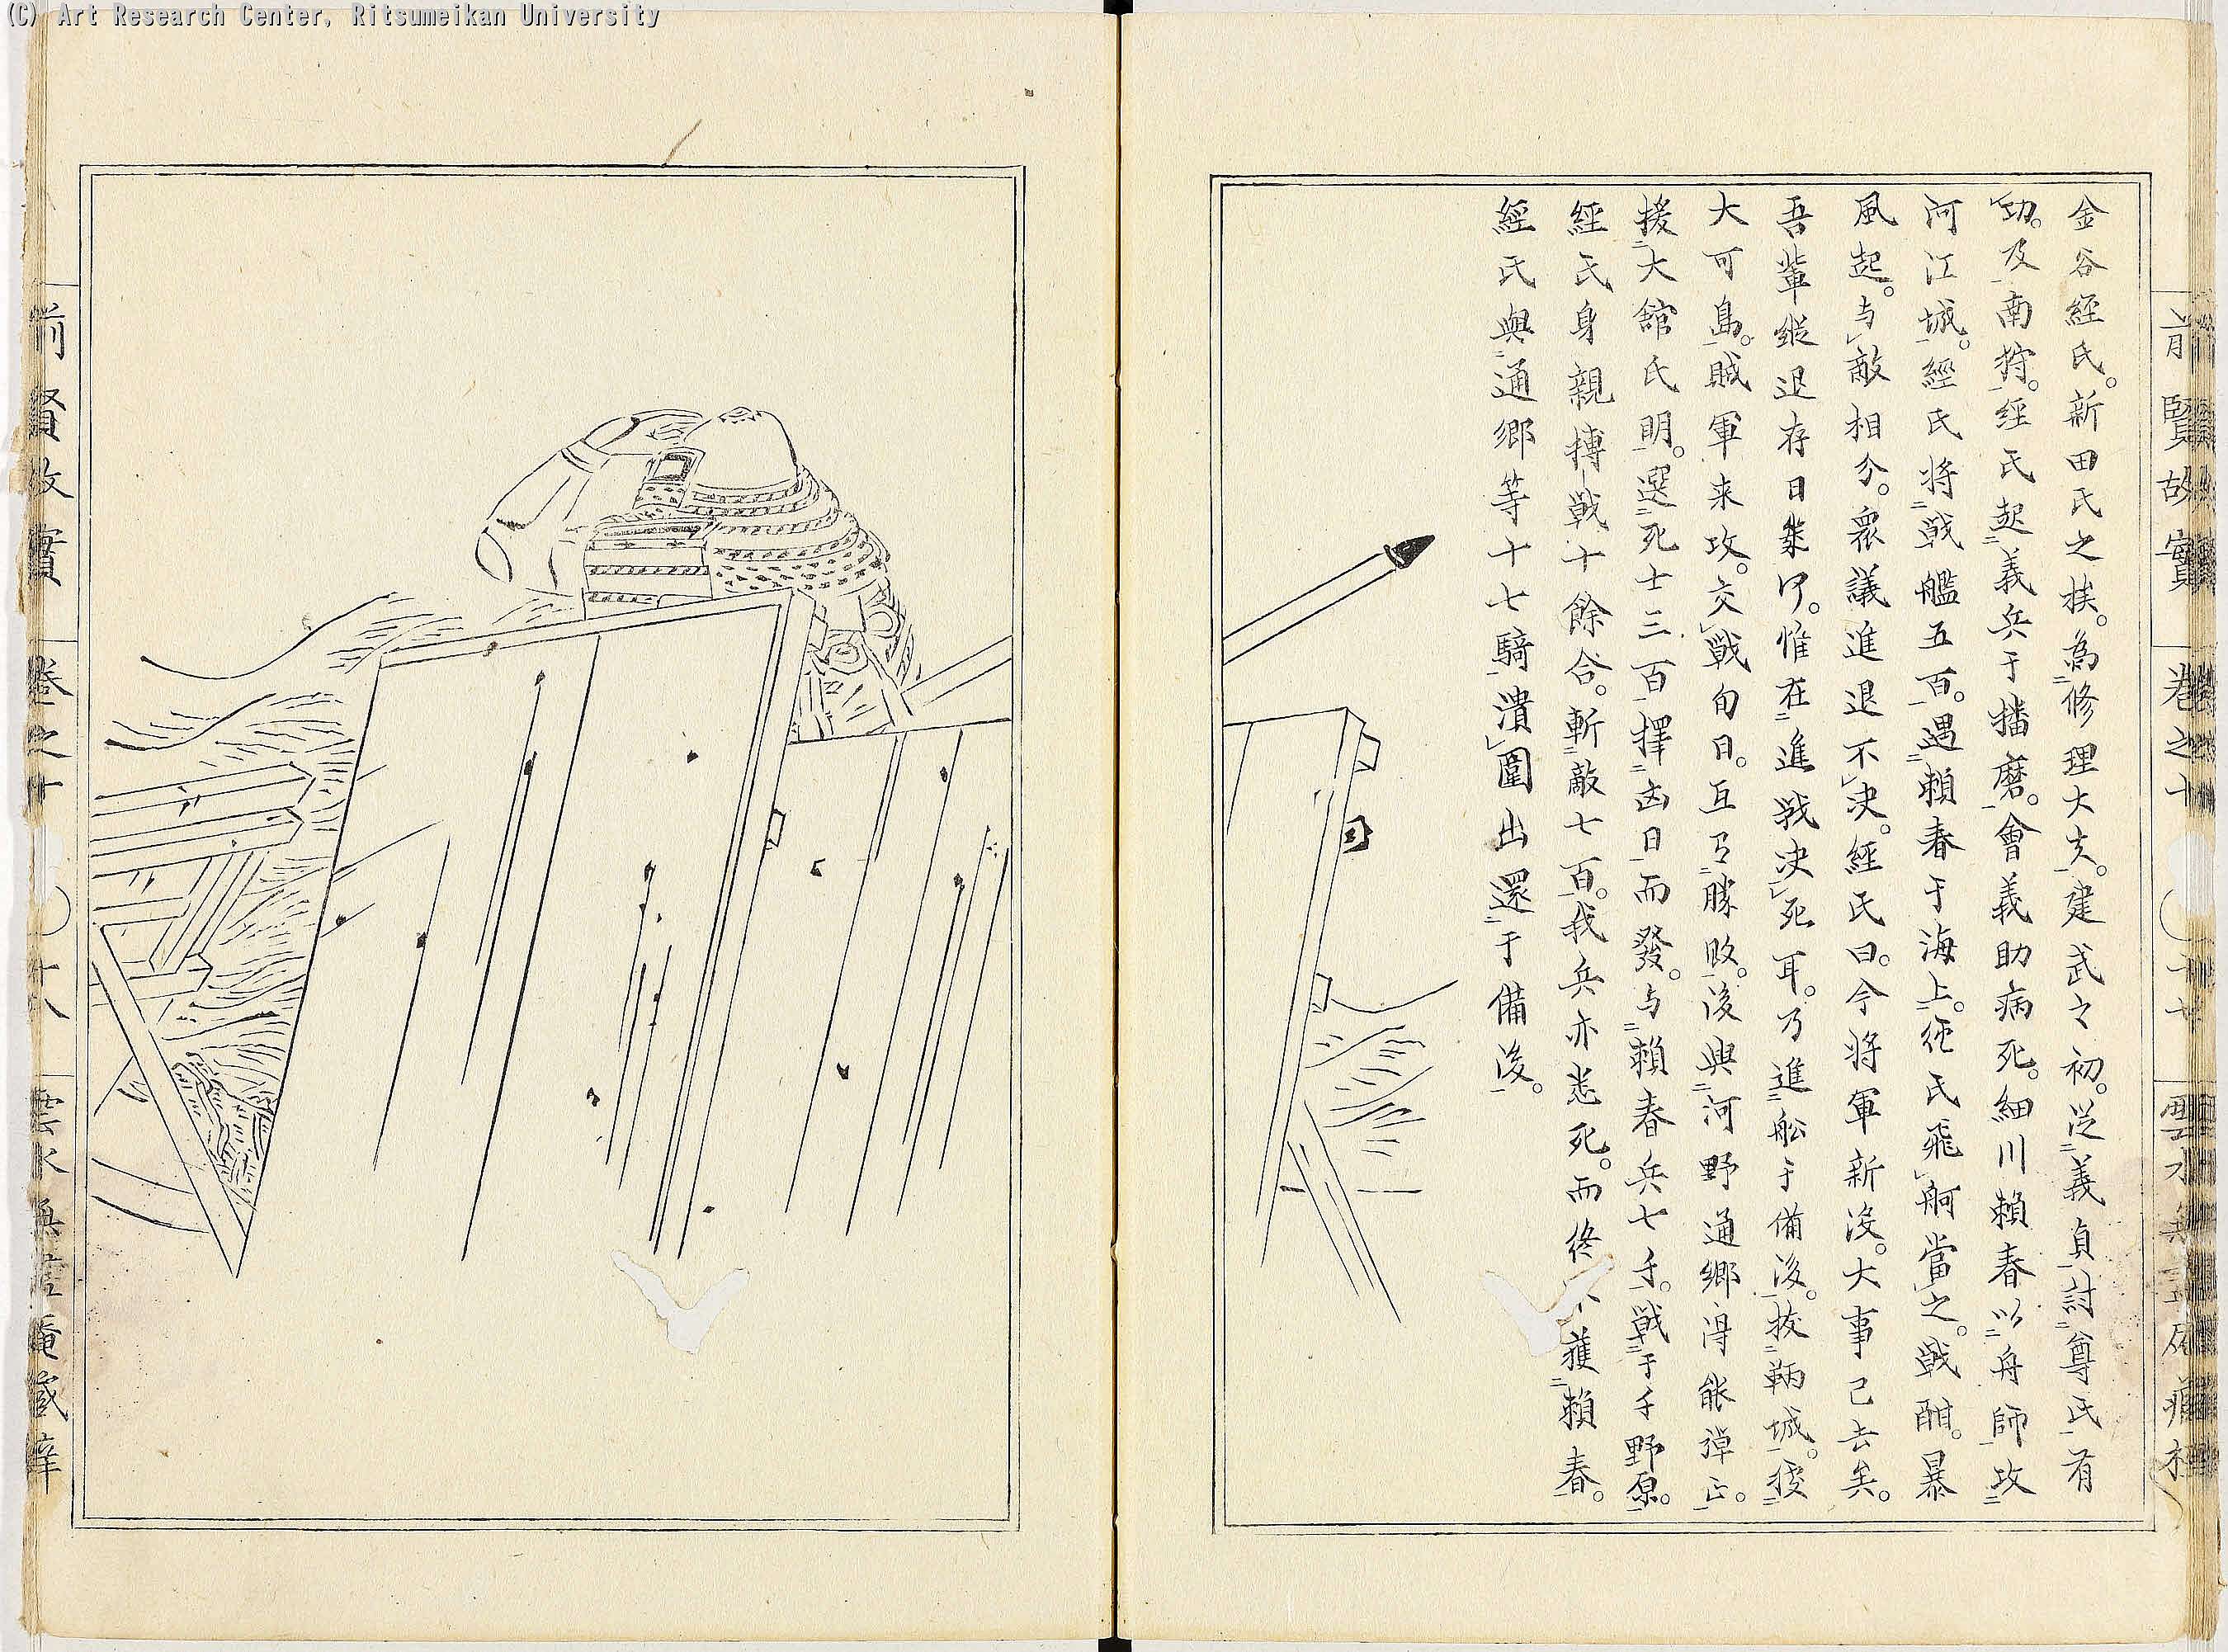 (C) Art Research Center, Ritsumeikan University
前賢故實 卷之十 十七
金谷經氏。新田氏之族。為修理大夫。建武之初。従義貞討尊氏有
功。及南狩。経氏起義兵于播磨。會義助病死。細川頼春以舟師攻
河江城。經氏将戦艦五百。遇頼春于海上。経氏飛舸當之。戦酣。暴
風起。与敵相分。衆議進退不决。經氏曰。今将軍新没。大事已去矣。
吾輩縦退存日幾何。惟在進戦决死耳。乃進舩于備後。抜鞆城。援
大可島。賊軍来攻。交戦旬日。互有勝敗。後與河野通郷得能弾正。
援大舘氏明。選死士三百擇凶日而發。与頼春兵七千。戦于千野原。
経氏身親搏戦十餘合。斬敵七百。我兵亦悉死。而終不獲頼春。
經氏與通郷等十七騎潰圍出還于備後。
前賢故實 卷之十 十八 雲水無盡庵蔵梓